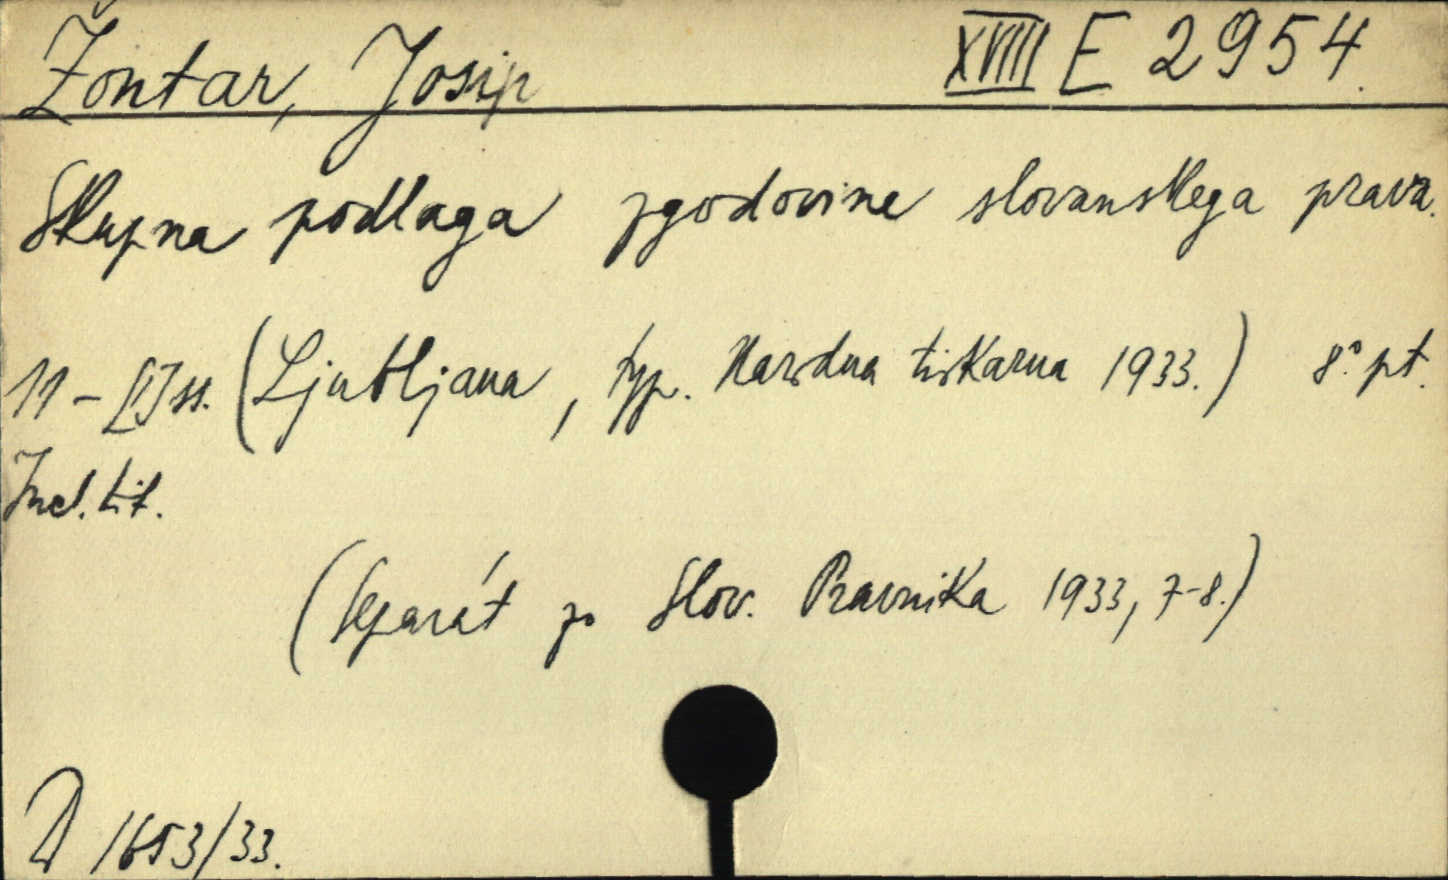 Žontar, Josip XVIII E 2954.
Skupna podlaga zgodovine slovanskega prava.
11 - [1] ss. (Ljubljana, typ. Narodna tiskarna 1933.) 8° pt.
Incl. tit.
(Separát zo Slov. Pravnika 1933, 7-8.)
D 1653/33.